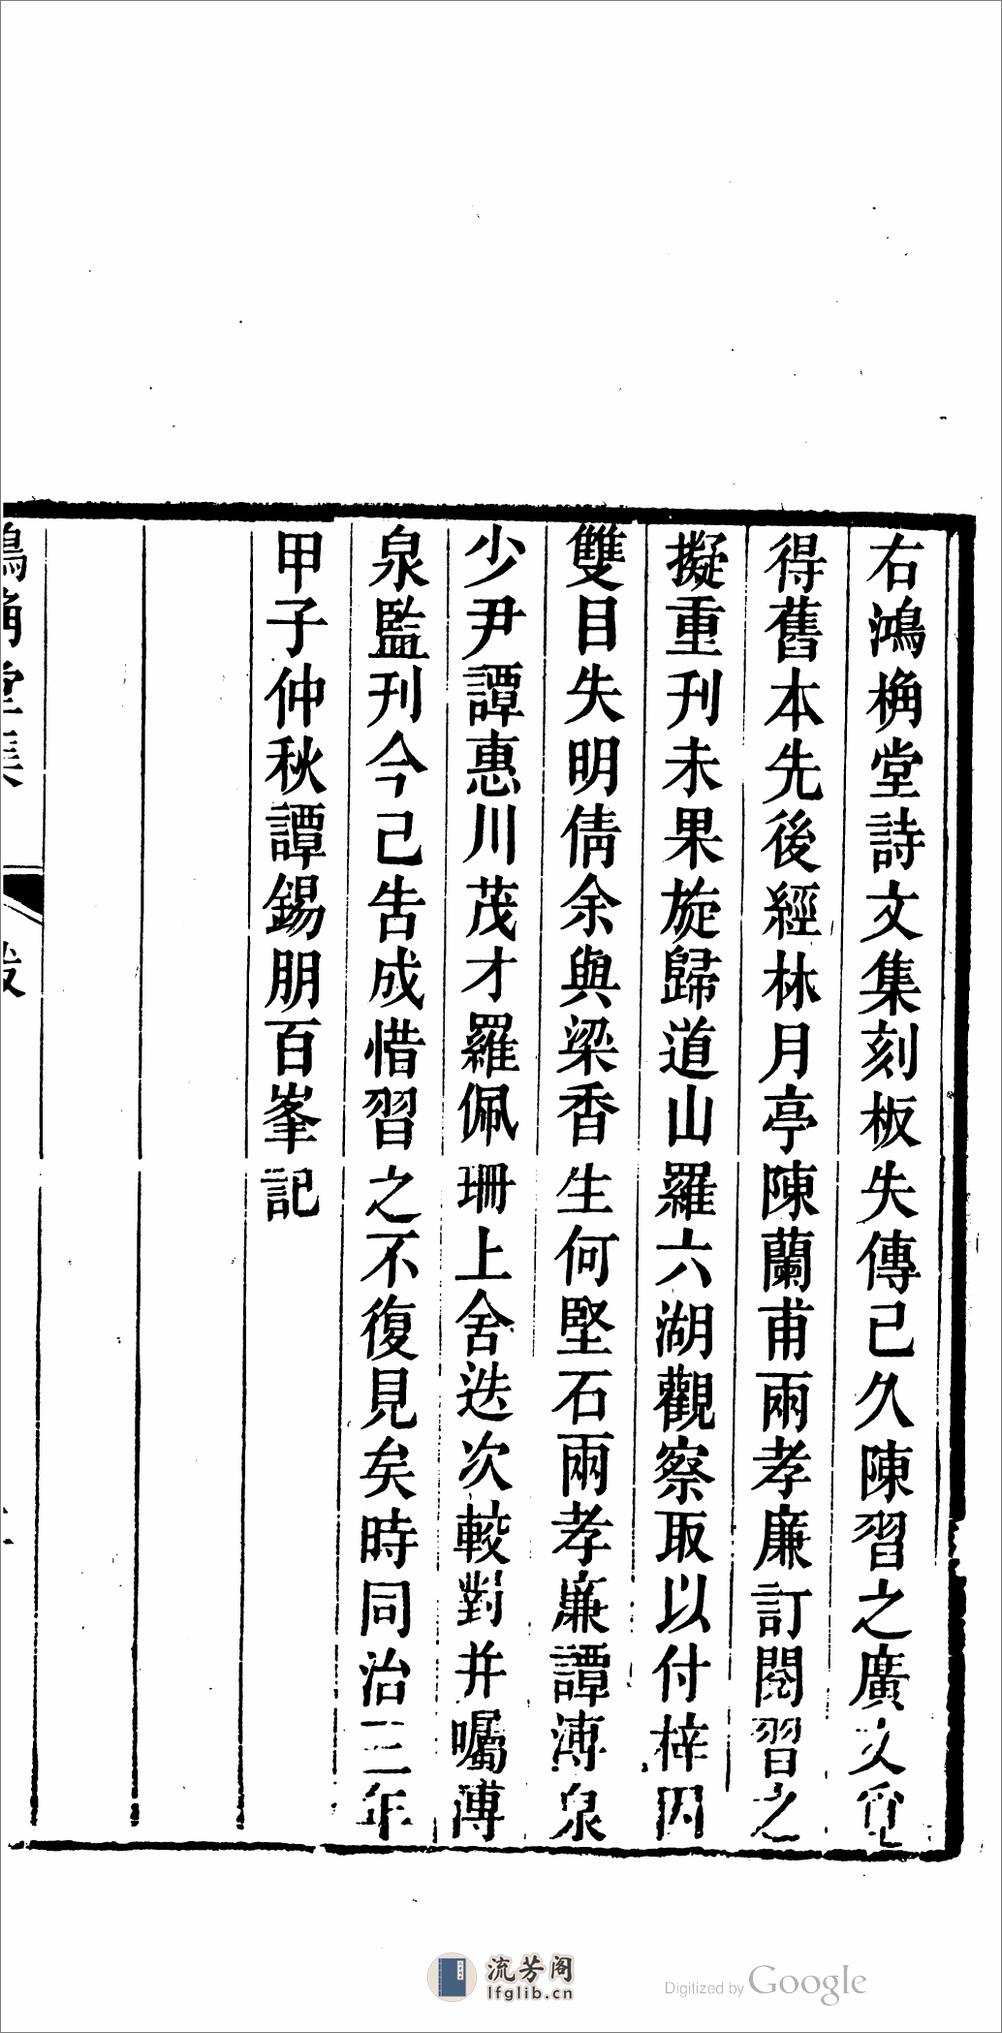 右鴻桷堂詩文集刻板失傳已久陳習之廣文覓
得舊本先後經林月亭陳蘭甫兩孝廉訂閱習之
擬重刊未果旋歸道山羅六湖觀察取以付梓因
雙目失明倩余與梁香生何堅石兩孝廉譚溥泉
少尹譚惠川茂才羅佩珊上舍迭次較對并囑溥
泉監刊今已告成惜習之不復見矣時同治三年
甲子仲秋譚錫朋百峯記
鴻桷堂集
跋
流芳阁
lfglib.cn
Digitized by Google